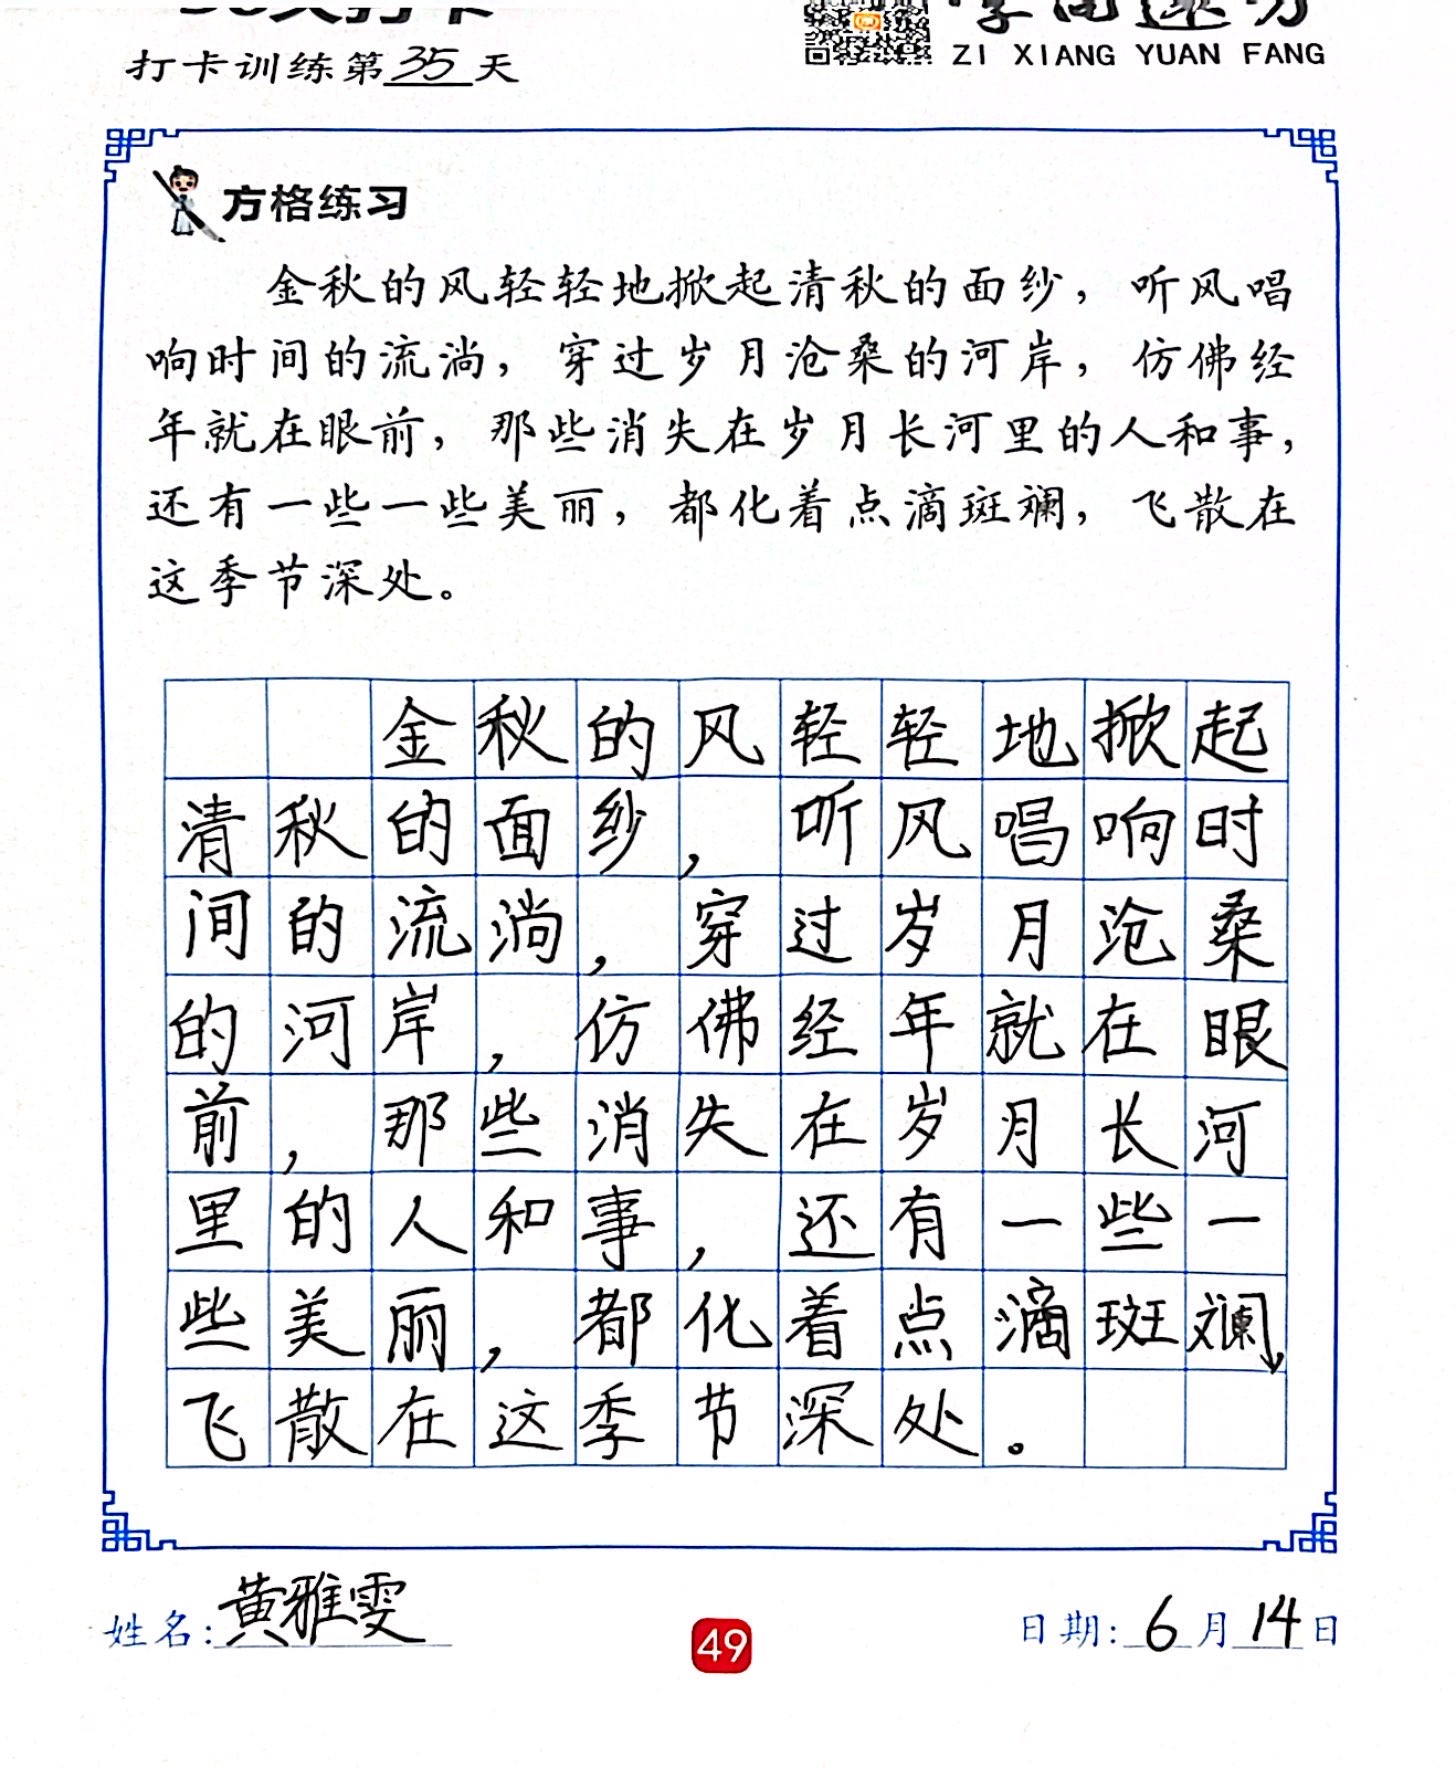 打卡训练第35天
ZI XIANG YUAN FANG
方格练习
金秋的风轻轻地掀起清秋的面纱，听风唱
响时间的流淌，穿过岁月沧桑的河岸，仿佛经
年就在眼前，那些消失在岁月长河里的人和事，
还有一些一些美丽，都化着点滴斑斓，飞散在
这季节深处。
金秋的风轻轻地掀起
清秋的面纱，听风唱响时
间的流淌，穿过岁月沧桑
的河岸，仿佛经年就在眼
前，那些消失在岁月长河
里的人和事，还有一些一
些美丽，都化着点滴斑斓，
飞散在这季节深处。
姓名：黄雅雯
49
日期：6月14日